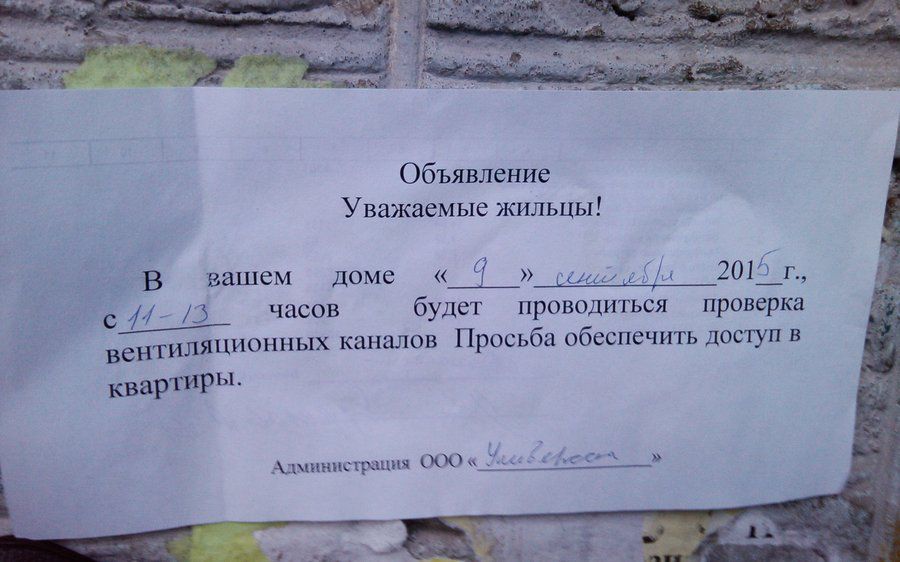 Объявление
Уважаемые жильцы!
В вашем доме « 9 » сентября 2015 г.,
с 11-13 часов будет проводиться проверка
вентиляционных каналов Просьба обеспечить доступ в
квартиры.
Администрация ООО « »